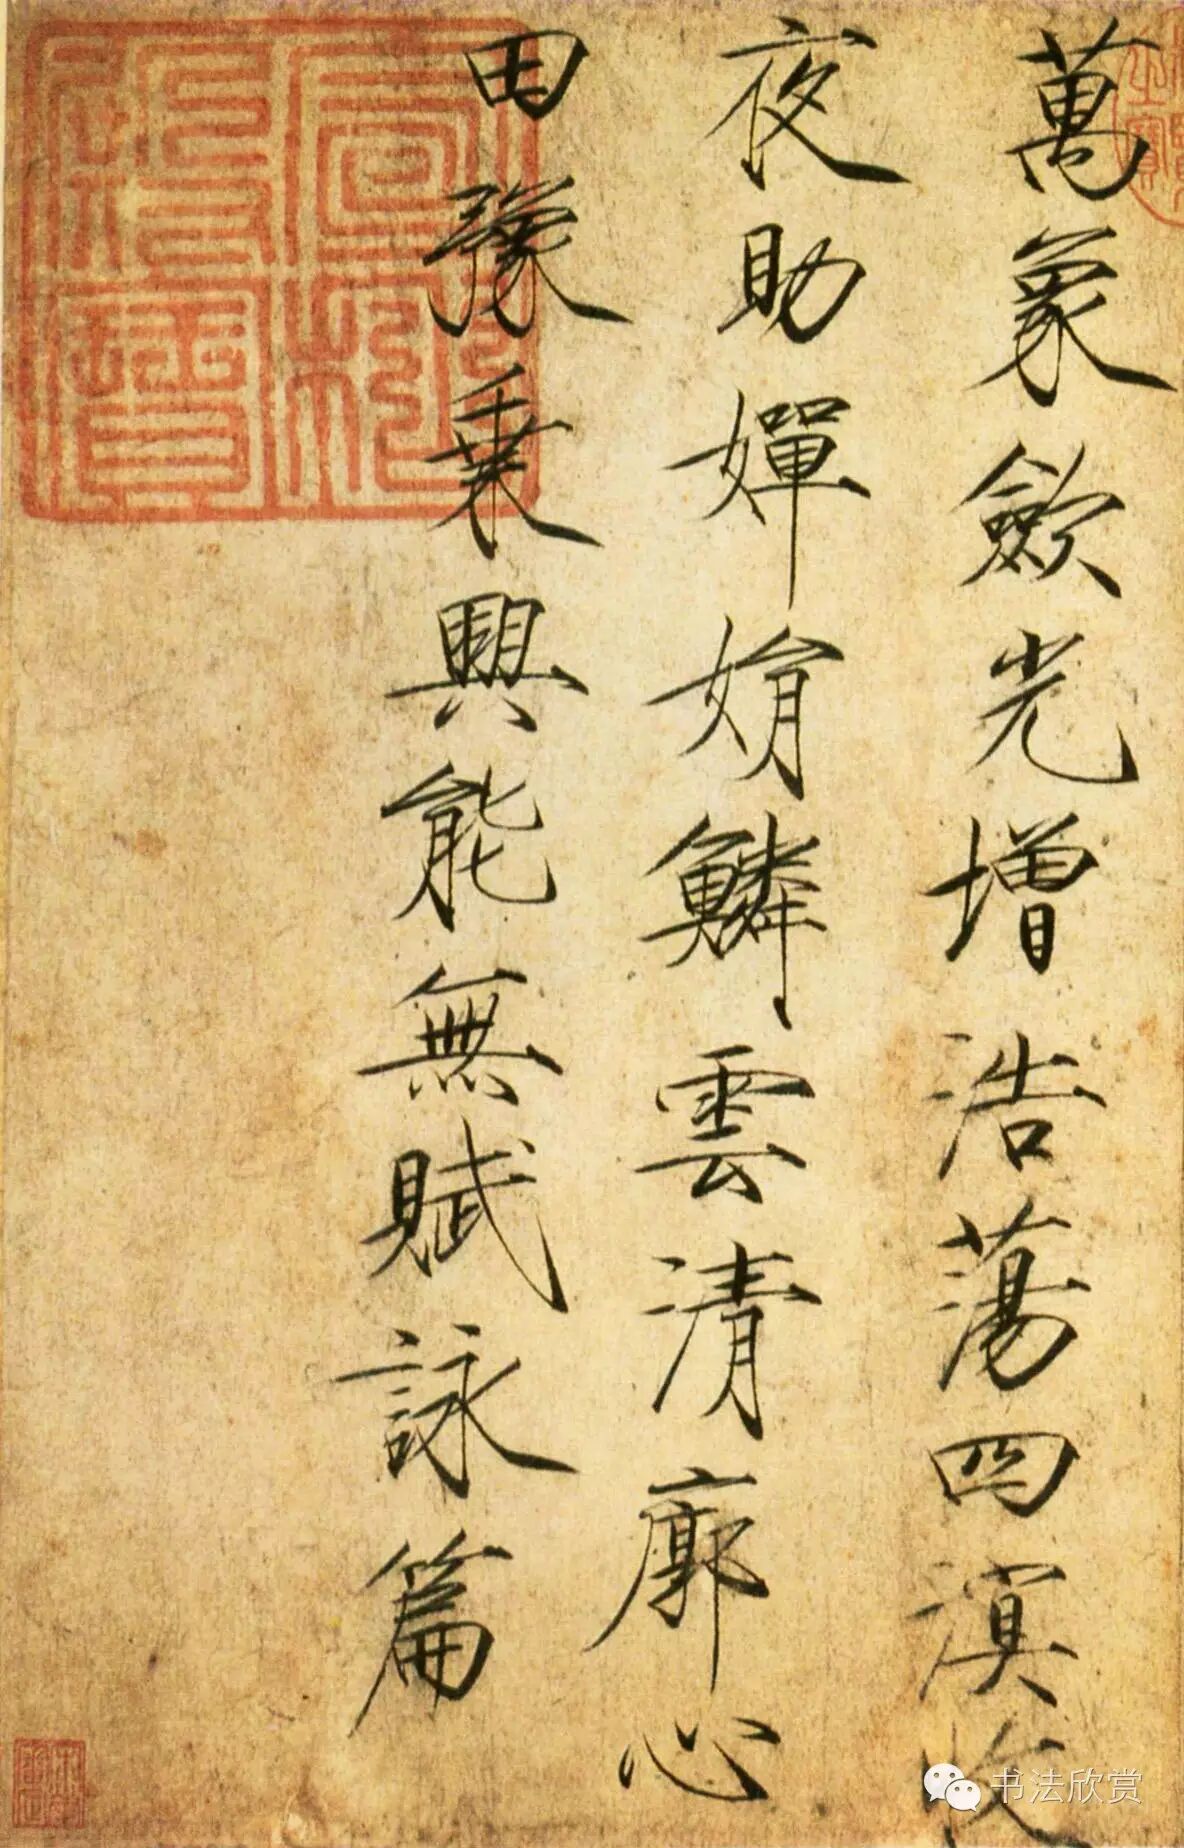 萬象歛光增浩蕩四溟收
夜助嬋娟鱗雲清廓心
田豫乘興能無賦詠篇
书法欣赏